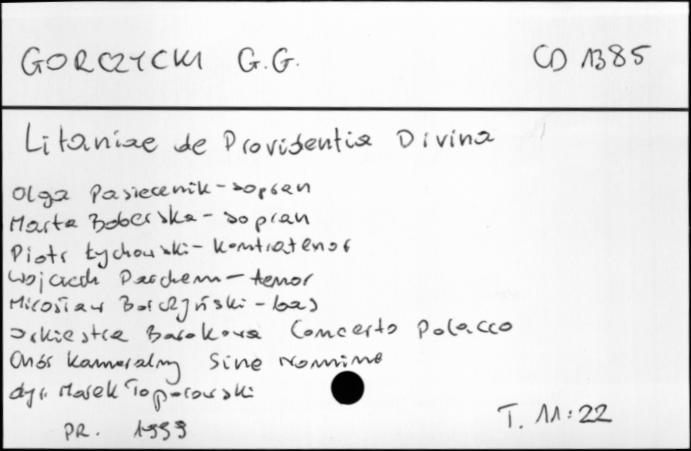 GORCZYCKI G.G. CD 1385
Litaniae de Providentia Divina
Olga Pasiecznik - sopran
Marta Boberska - sopran
Piotr Łychowski - kontratenor
Wojciech Parchem - tenor
Mirosław Borczyński - bas
Orkiestra Barokowa Concerto Polacco
Chór Kameralny Sine Nomine
dyr. Marek Toporowski
PR. 1999
T. 11:22